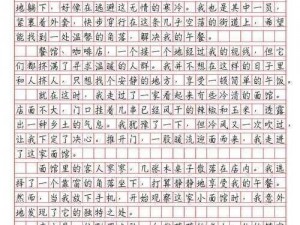 地躺下，好像在逃避这无情的寒冷。我也是其中一员，
紧裹着外套，快步穿行在这条几乎空落的街道上，希望
能找到一处温馨的角落，解决我的午餐。
餐馆、咖啡店，一个接一个地经过我的视线，但它
们都挤满了寻求温暖的人群。我不想在喧闹的环境里和
人挤人，只想找个安静的地方，享受一顿简单的午饭。
就在这时，我走过了一家看起来有些冷清的面馆。
店面不大，门口挂着几串已经风干的辣椒和玉米，透露
出一种乡土的气息。我犹豫了一下，但冷风又一次吹过，
让我下定了决心，推开门，一股暖流迎面而来，我走进
了这家面馆。
面馆里的客人寥寥，几张木桌子散落在店内。我选
择了一个靠窗的角落坐下，打算静静地享受我的午餐。
然而，当我放下手机，开始观察这家小面馆时，我意外
地发现了它的独特之处。